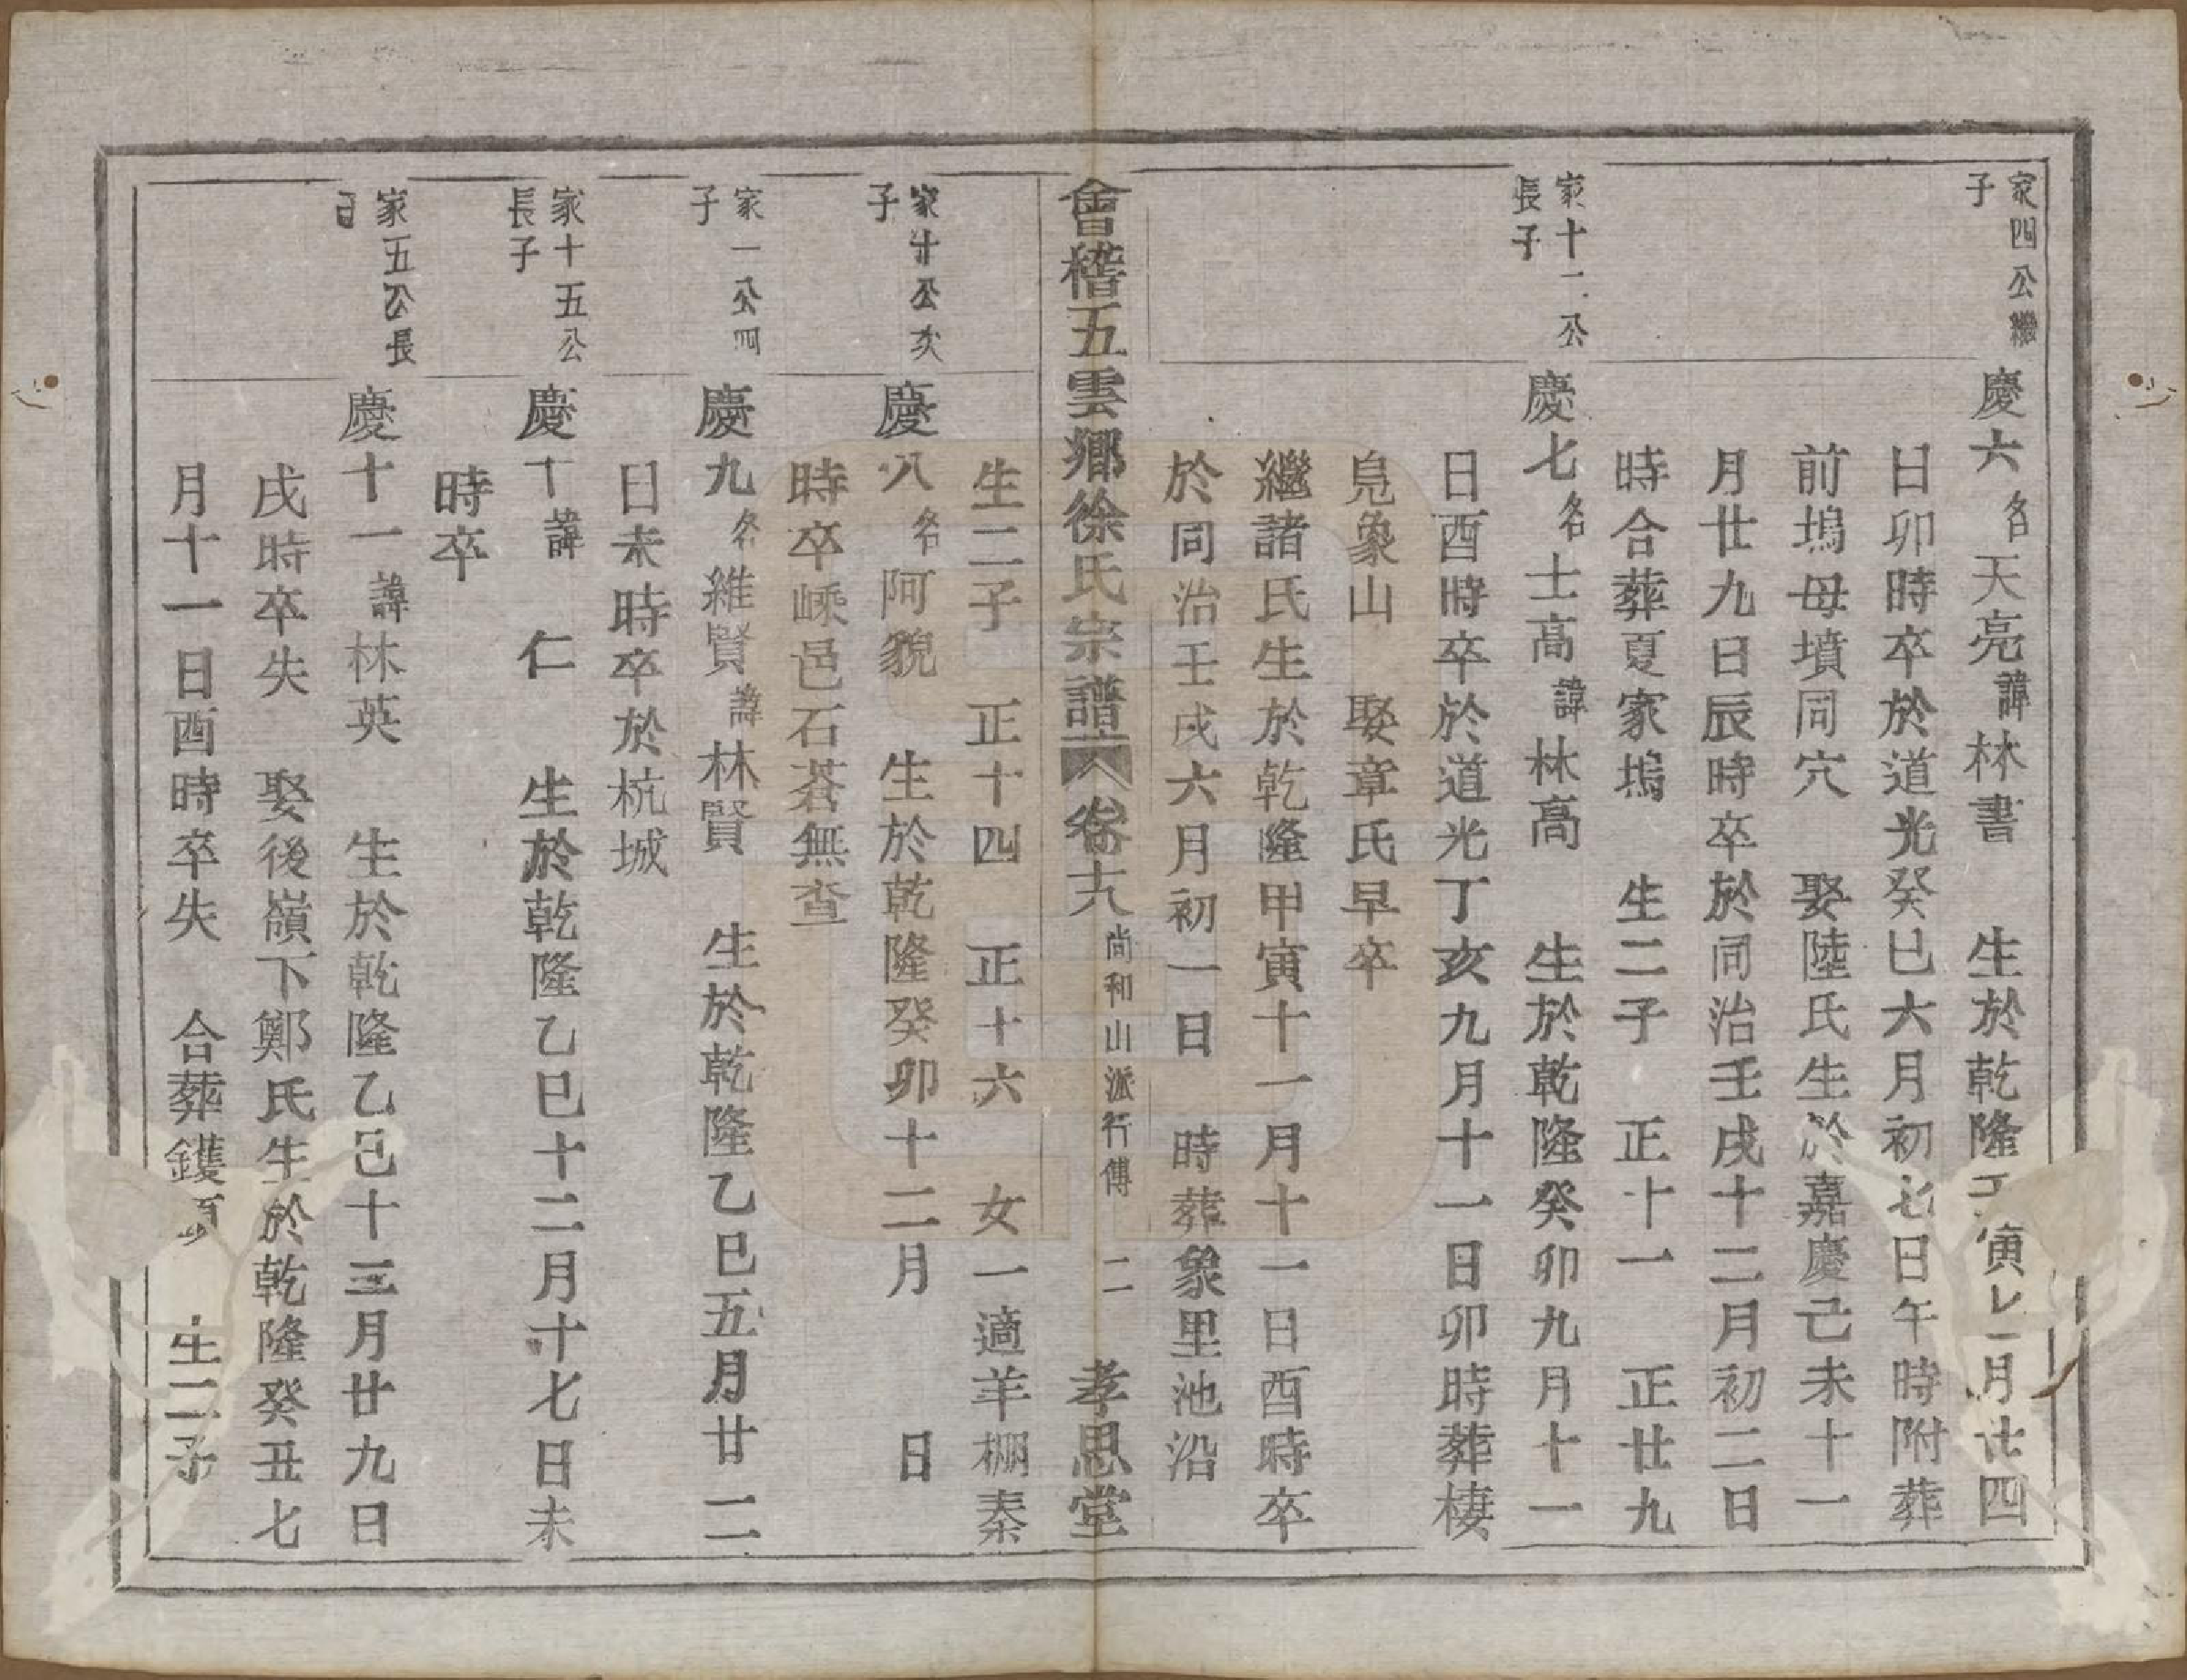 家四公繼
子
慶六名天亮諱林書　生於乾隆　寅　月廿四
日卯時卒於道光癸巳六月初七日午時附葬
前塢母墳同穴　娶陸氏生於嘉慶己未十一
月廿九日辰時卒於同治壬戌十二月初二日
時合葬夏家塢　生二子　正十一　正廿九
家十一公
長子
慶七名士高諱林高　生於乾隆癸卯九月十一
日酉時卒於道光丁亥九月十一日卯時葬棲
鳧象山　娶章氏早卒
繼諸氏生於乾隆甲寅十一月十一日酉時卒
於同治壬戌六月初一日　時葬象里池沿
會稽五雲鄉徐氏宗譜　卷十九　尚和山派行傳　二　孝思堂
生二子　正十四　正十六　女一適羊棚秦
家廿公次
子
慶八名阿貌　生於乾隆癸卯十二月　日
時卒嵊邑石蒼無查
家一公四
子
慶九名維賢諱林賢　生於乾隆乙巳五月廿二
日未時卒於杭城
家十五公
長子
慶十諱　仁　生於乾隆乙巳十二月十七日未
時卒
家五公長
慶十一諱林英　生於乾隆乙巳十三月廿九日
戌時卒失　娶後嶺下鄭氏生於乾隆癸丑七
月十一日酉時卒失　合葬鑊　生二子